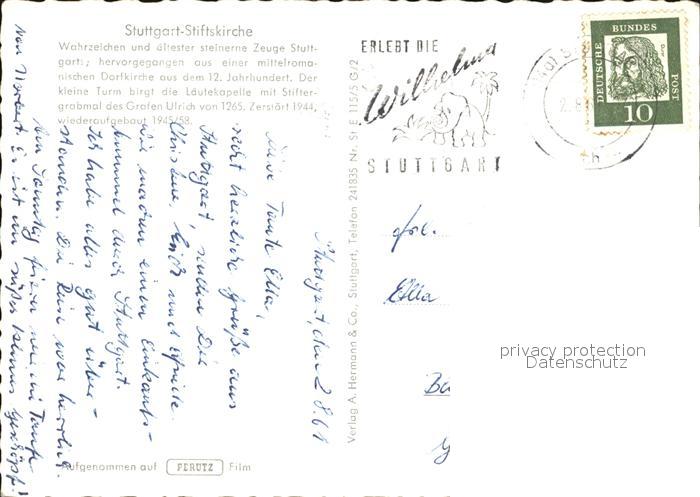 Stuttgart-Stiftskirche
Wahrzeichen und ältester steinerne Zeuge Stutt-
gart:; hervorgegangen aus einer mittelroma-
nischen Dorfkirche aus dem 12. Jahrhundert. Der
kleine Turm birgt die Läutekapelle mit Stifter-
grabmal des Grafen Ulrich von 1265. Zerstört 1944,
wiederaufgebaut 1945/58.
Stuttgart, den 2.8.61
Meine Tante Ella,
recht herzliche Grüße aus
Stuttgart, senden Dir
Christine, Erich und
Wir machen einen Einkaufs-
bummel durch Stuttgart.
Ich habe alles gut über-
standen. Die Reise war herrlich.
Am Sonntag
Aufgenommen auf PERUTZ Film
Verlag A. Hermann & Co., Stuttgart, Telefon 241835 Nr. St E 115/5 G/2
ERLEBT DIE
Wilhelma
STUTTGART
DEUTSCHE BUNDES POST
10
Frl.
Ella
privacy protection
Datenschutz